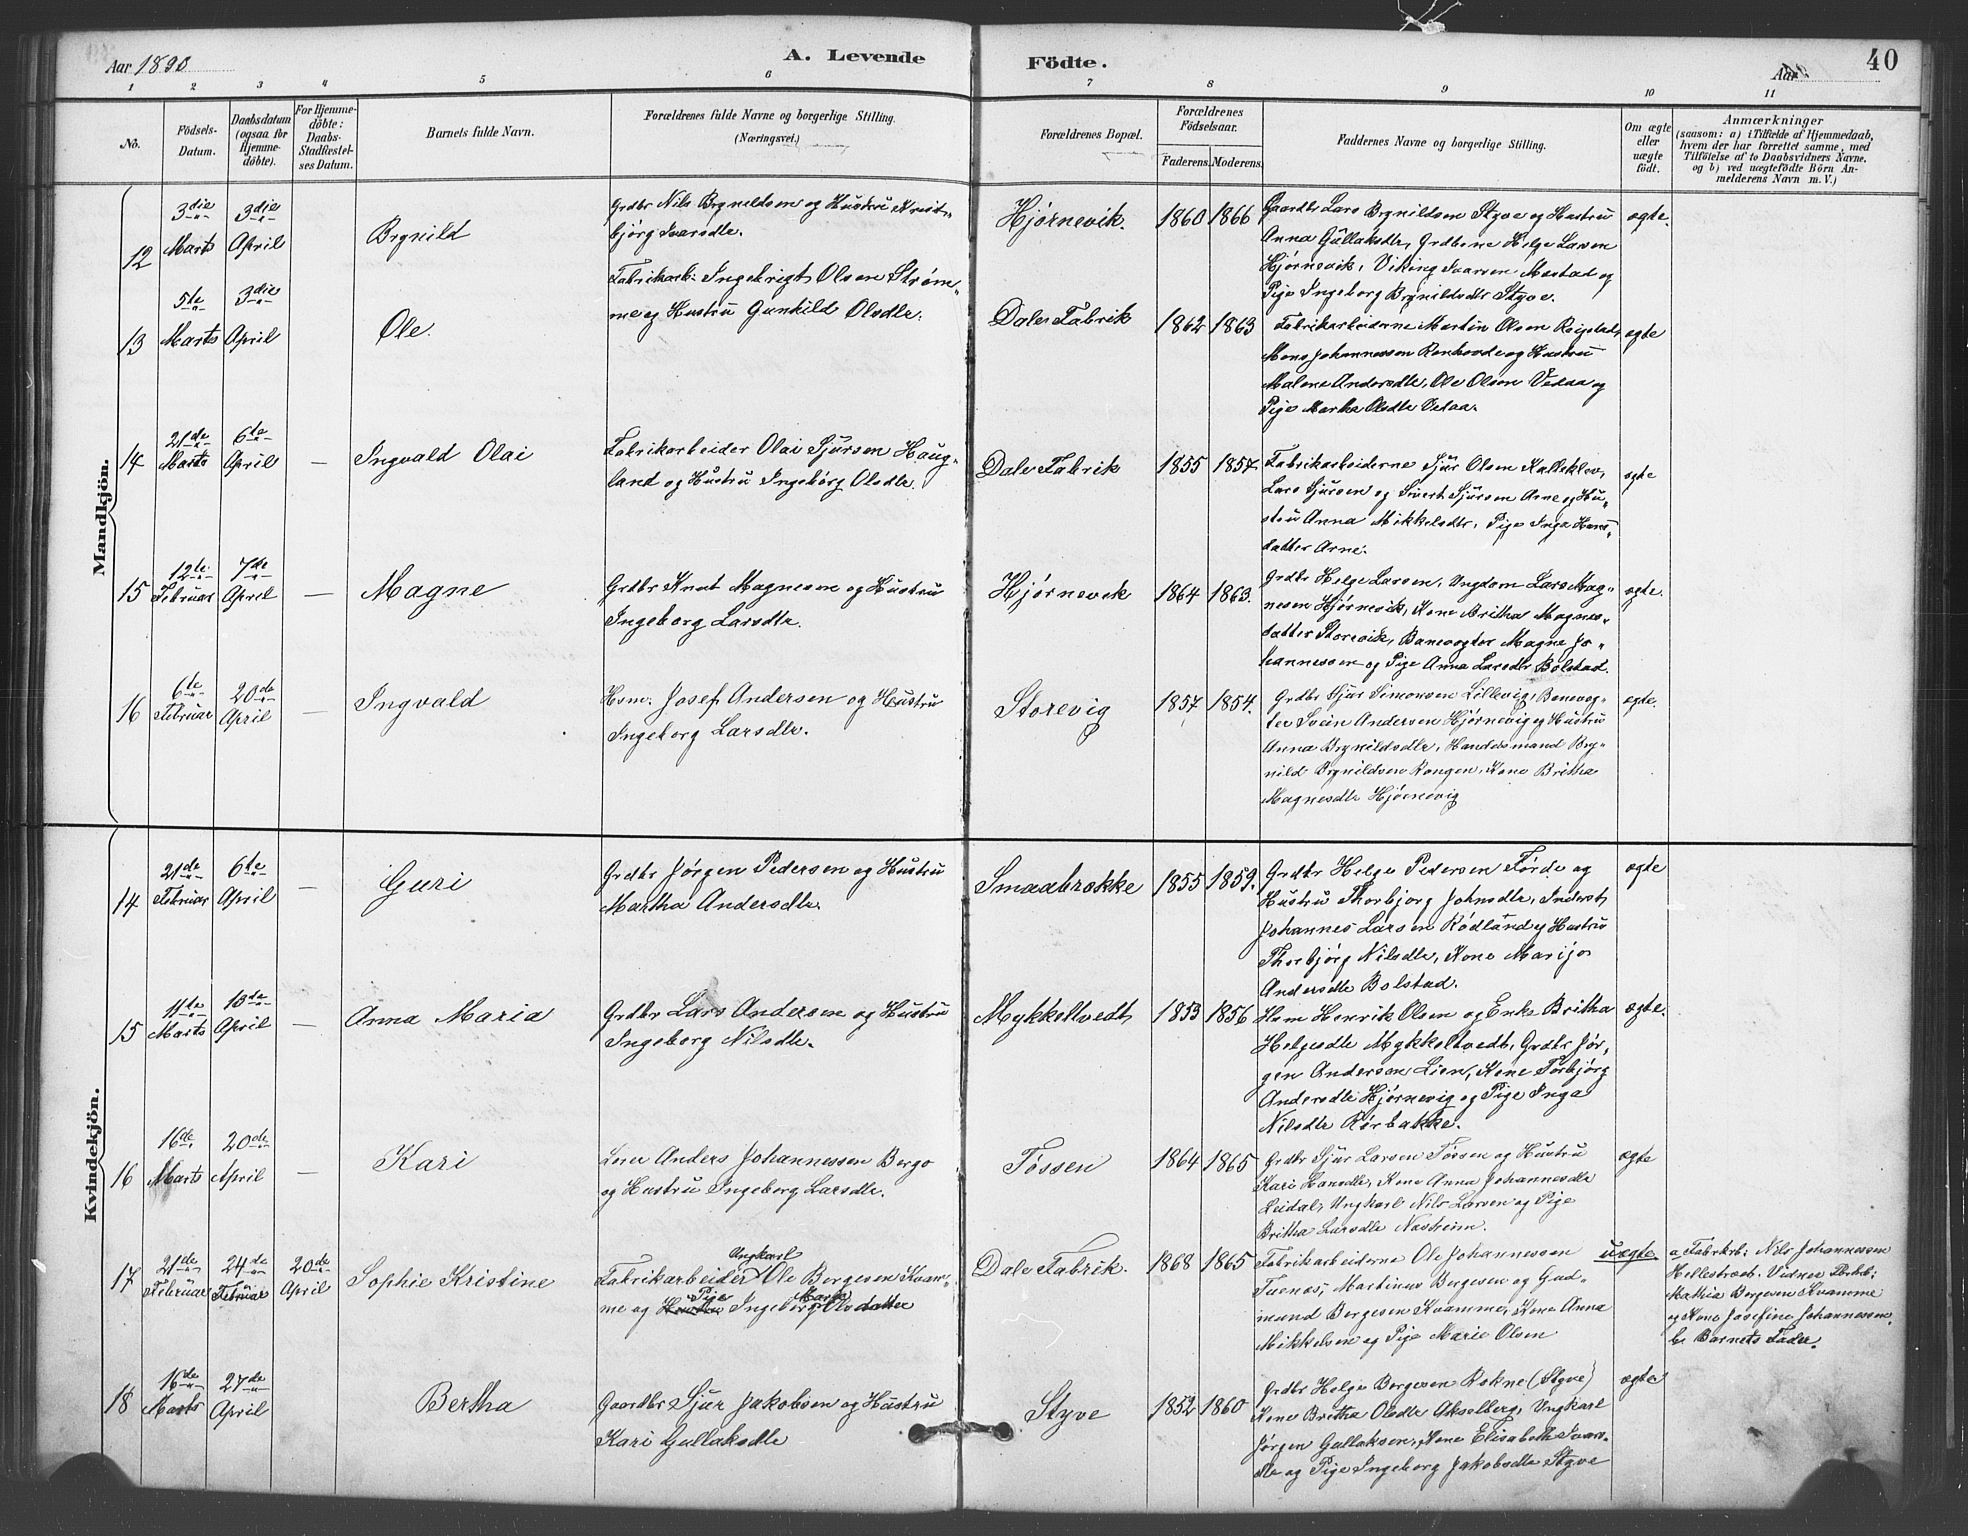 Aar 1890
A. Levende
Födte.
Aar
40
1 2 3 4 5 6 7 8 9 10 11
No.
Födsels-
Datum.
Daabsdatum
(ogsaa for
Hjemme-
döbte).
For Hjemme-
döbte:
Daabs-
Stadfæstel-
ses Datum.
Barnets fulde Navn.
Forældrenes fulde Navne og borgerlige Stilling.
(Næringsvei.)
Forældrenes Bopæl.
Forældrenes
Födselsaar.
Faderens. Moderens.
Faddernes Navne og borgerlige Stilling.
Om ægte
eller
uægte
födt.
Anmærkninger
(saasom: a) i Tilfælde af Hjemmedaab,
hvem der har forrettet samme, med
Tilföielse af to Daabsvidners Navne,
og b) ved uægtefödte Börn An-
melderens Navn m. V.)
Mandkjön.
12
3die
Marts
3die
April
Brynild
Grdbr Nils Brynildsen og Hustru Krist-
bjørg Ivarsdtr.
Hjørnevik.
1860 1866
Gaardbr Lars Brynildsen Styve og Hustru
Anna Gullaksdtr, Grdbrne Helge Larsen
Hjørnevik, Viking Ivarsen Mostad og
Pige Ingeborg Brynildsdtr Styve.
ægte.
13
5te
Marts
3die
April
Ole.
Fabrikarb: Ingebrigt Olsen Strøm-
me og Hustru Gunhild Olsdtr.
Dale Fabrik
1862 1863
Fabrikarbeiderne Martin Olsen Reigstad,
Mons Johannessen Ronhovde og Hustru
Malene Andersdtr, Ole Olsen Vedaa og
Pige Marta Olsdtr Vedaa.
ægte
14
21de
Marts
6te
April
—
Ingvald Olai
Fabrikarbeider Olai Sjursen Haug-
land og Hustru Ingeborg Olsdtr.
Dale Fabrik
1855 1857.
Fabrikarbeiderne Sjur Olsen Kalleklev,
Lars Sjursen og Sivert Sjursen Arne og Hu-
stru Anna Mikkelsdtr, Pige Inga Hans-
datter Arne.
ægte
15
12te
Februar
7de
April
—
Magne
Grdbr Knut Magnesen og Hustru
Ingeborg Larsdtr.
Hjørnevik
1864 1863.
Grdbr Helge Larsen, Ungdom Lars Mag-
nesen Hjørnevik, Kone Britha Magnes-
datter Storevik, Banevogter Magne Jo-
hannessen og Pige Anna Larsdtr Bolstad.
ægte.
16
6te
Februar
20de
April
—
Ingvald
Hsm. Josef Andersen og Hustru
Ingeborg Larsdtr.
Storevig
1857 1854.
Grdbr Sjur Simonsen Lillevig, Banevog-
ter Svein Andersen Hjørnevig og Hustru
Anna Brynildsdtr, Handelsmand Bry-
nild Brynildsen Rongen, Kone Britha
Magnesdtr Hjørnevig
ægte.
Kvindekjön.
14
21de
Februar
6te
April
—
Guri
Grdbr Jørgen Pedersen og Hustru
Martha Andersdtr.
Smaabrække
1855 1859.
Grdbr Helge Pedersen Førde og
Hustru Thorbjørg Johnsdtr, Inderst
Johannes Larsen Rødland og Hustru
Thorbjørg Nilsdtr, Kone Marijo
Andersdtr Bolstad.
ægte
15
11te
Marts
13de
April
—
Anna Maria
Grdbr Lars Andersen og Hustru
Ingeborg Nilsdtr.
Mykkeltvedt,
1853 1856
Hsm Henrik Olsen og Enke Britha
Helgesdtr Mykkeltvedt, Grdbr Jør-
gen Andersen Lien, Kone Torbjørg
Andersdtr Hjørnevig og Pige Inga
Nilsdtr Rørbakke.
ægte.
16
16de
Marts
20de
April
—
Kari
Leier Anders Johannessen Berge
og Hustru Ingeborg Larsdtr.
Tøssen
1864 1865
Grdbr Sjur Larsen Tøssen og Hustru
Kari Hansdtr, Kone Anna Johannesdtr
Leidal, Ungkarl Nils Larsen og Pige
Britha Larsdtr Næsheim.
ægte
17
21de
Februar
24de
Februar
20de
April
Sophie Kristine
Ungkarl
Fabrikarbeider Ole Bergesen Kvam-
Pige Marta
me og Hustru Ingeborg Olsdatter
Dale Fabrik.
1868 1865
Fabrikarbeiderne Ole Johannessen
Tuenes, Martinus Bergesen og Gud-
mund Bergesen Kvamme, Kone Anna
Mikkelsen og Pige Marie Olsen
uægte
a, Fabrikb: Nils Johannessen
Hellestræ. Vidner Fabrikb:
Mathia Bergesen Kvamme
og Kone Josefine Johannessen.
b, Barnets Fader.
18
16de
Marts
27de
April
Bertha
Gaardbr Sjur Jakobsen og Hustru
Kari Gullaksdtr
Styve
1852 1860
Grdbr Helge Bergesen Rokne (Styve)
Kone Britha Olsdtr Akselberg, Ungkarl
Jørgen Gullaksen, Kone Elisabeth Ivars-
dtr og Pige Ingeborg Jakobsdtr Styve
ægte